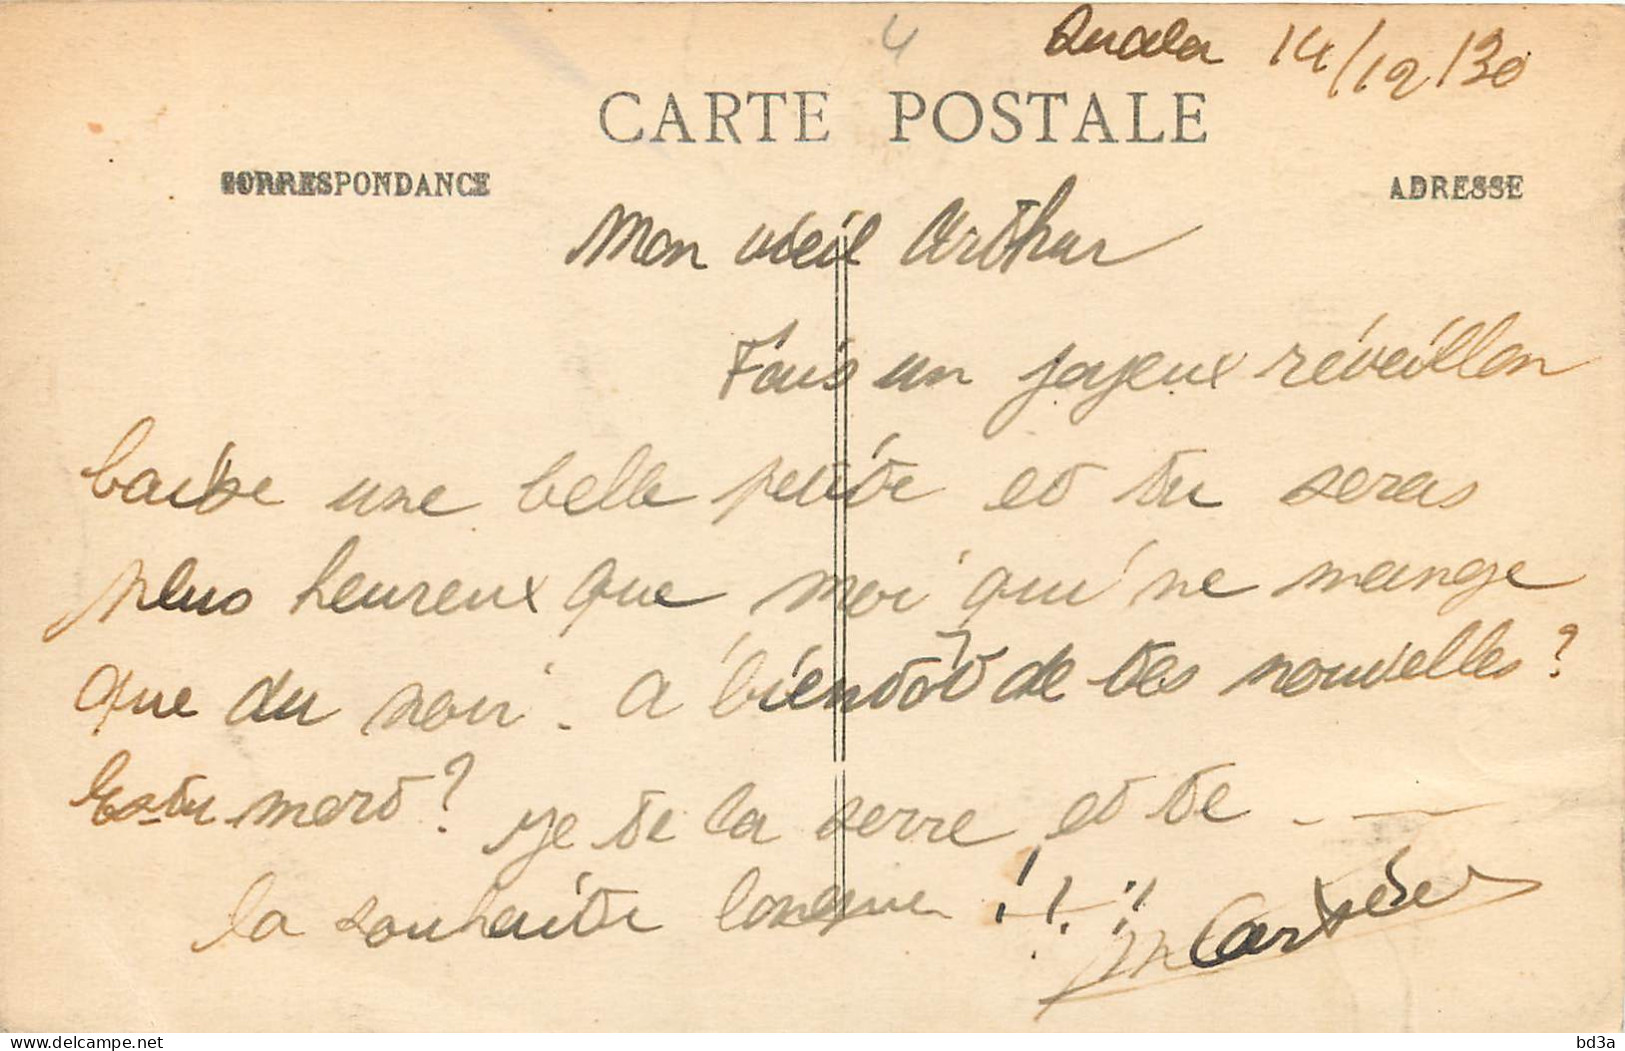 4
Duala 14/12/30
CARTE POSTALE
CORRESPONDANCE
ADRESSE
Mon vieil Arthur
Fais un joyeux réveillon
baise une belle petite et tu seras
plus heureux que moi qui ne mange
que du noir. A bientôt de tes nouvelles?
Es-tu mort? Je te la serre et te
la souhaite longue !!!!
delcampe.net
bd3a